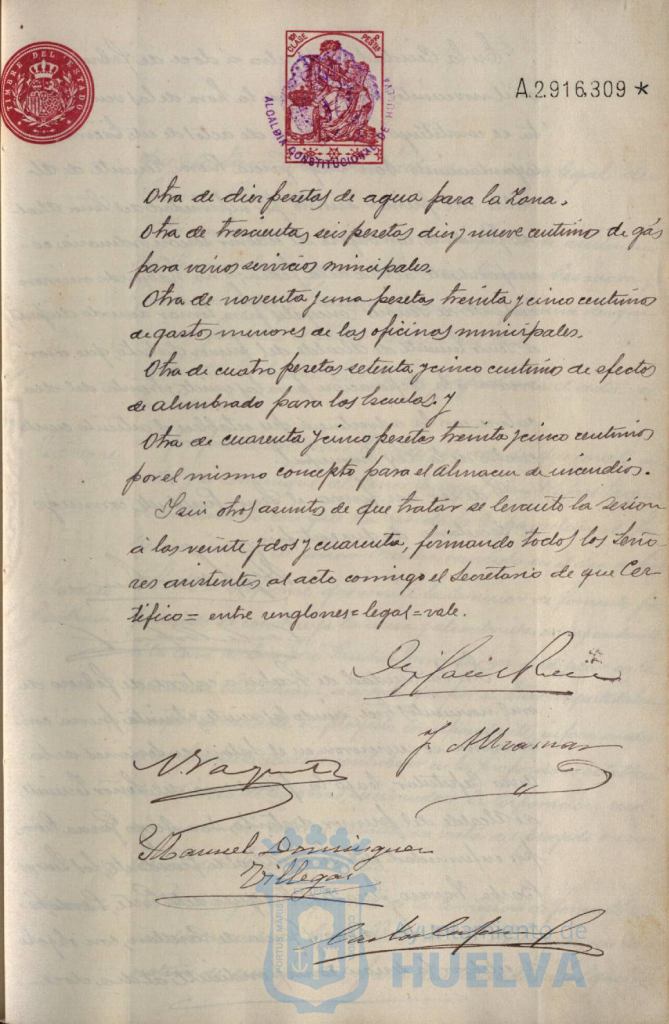 TIMBRE DEL ESTADO
CLASE
PESTAS
ALCALDIA CONSTITUCIONAL DE HUELVA
A.2.916.309 *
Otra de diez pesetas de agua para la Zona.
Otra de trescientas seis pesetas diez y nueve centimos de gás
para varios servicios municipales.
Otra de noventa y una pesetas treinta y cinco centimos
de gastos menores de las oficinas municipales.
Otra de cuatro pesetas setenta y cinco centimos de efectos
de alumbrado para las Escuelas. y
Otra de cuarenta y cinco pesetas treinta y cinco centimos
por el mismo concepto para el Almacen de incendios.
Y sin otros asuntos de que tratar se levantó la sesion
á las veinte y dos y cuarenta, firmando todos los Seño
res asistentes al acto conmigo el Secretario de que Cer-
tifico = entre renglones = legal = vale.
N. Vazquez
Manuel Dominguez
Villegas
PORTUS MARIS
Ayuntamiento de
HUELVA